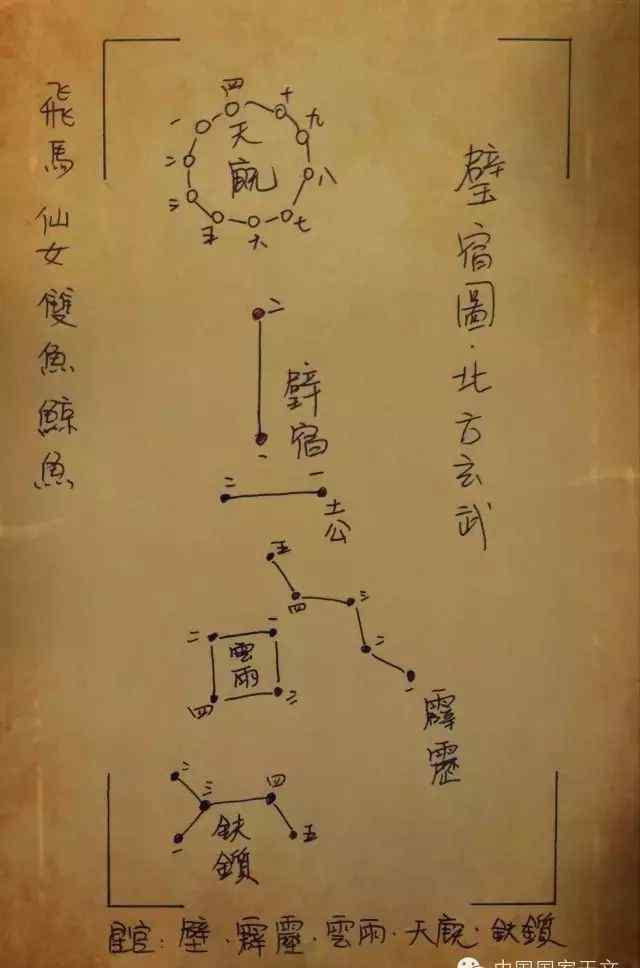 壁宿圖·北方玄武
飛馬 仙女 雙魚 鯨魚
四
十
一
九
二
八
三
五
六
七
天廄
二
一
壁宿
二
一
土公
五
四
三
二
一
霹靂
二
一
四
三
雲雨
二
三
四
一
五
鈇鑕
星官：壁·霹靂·雲雨·天廄·鈇鑕
中国国家天文